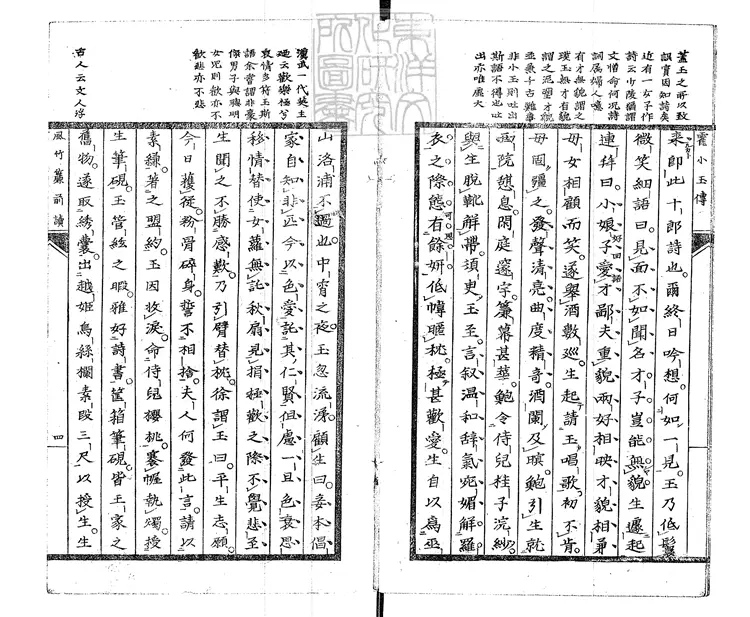 蓋玉之所以致
誤實因知詩矣
近有一女子作
詩云少陵猶謂
文憎命何况詩
詞属婦人噫
有才無貌謂之
璞玉無才有貌
謂之泥塑才貌
並兼千古難事
非小玉則吐出
斯語不得也吐
出亦唯
霍小玉傳
來即此十郎詩也。爾終日吟想何如一見。玉乃低鬟
微笑細語曰。見面不如聞名。才子豈能無貌。生遽起
連拜曰。小娘子愛才。鄙夫重貌。兩好相映。才貌相兼
好回語
母女相顧而笑。遂舉酒數巡。生起請玉唱歌。初不肯
母固彊之。發聲清亮。曲度精奇。酒闌及暝。鮑引生就
西院憩息。閑庭邃宇。簾幕甚華。鮑令侍兒桂子浣紗
與生脫靴解帶。須臾玉至。言叙溫和。辭氣宛媚。解羅
衣之際。態有餘妍。低幃暱枕。極甚歡愛。生自以爲巫
漢武一代英主
廼云歡樂極兮
哀情多符玉斯
語余嘗謂非豪
傑男子與聰明
女児則歡亦不
歡悲亦不悲
古人云文人浮
山洛浦不過也。中宵之夜。玉忽流涕。顧生曰。妾本倡
家。自知非匹。今以色愛。託其仁賢。但慮一旦色衰。恩
移情替。使女蘿無託。秋扇見捐。極歡之際。不覺悲至
生聞之。不勝感歎。乃引臂替枕。徐謂玉曰。平生志願
今日獲從。粉骨碎身。誓不相捨。夫人何發此言。請以
素縑。著之盟約。玉因收淚。命侍兒櫻桃。褰幄執燭。授
生筆硯。玉管絃之暇。雅好詩書。筐箱筆硯。皆王家之
舊物。遂取繡囊。出越姬烏絲欄素段三尺以授生。生
風竹簾前讀
四
東洋文化研究所圖書